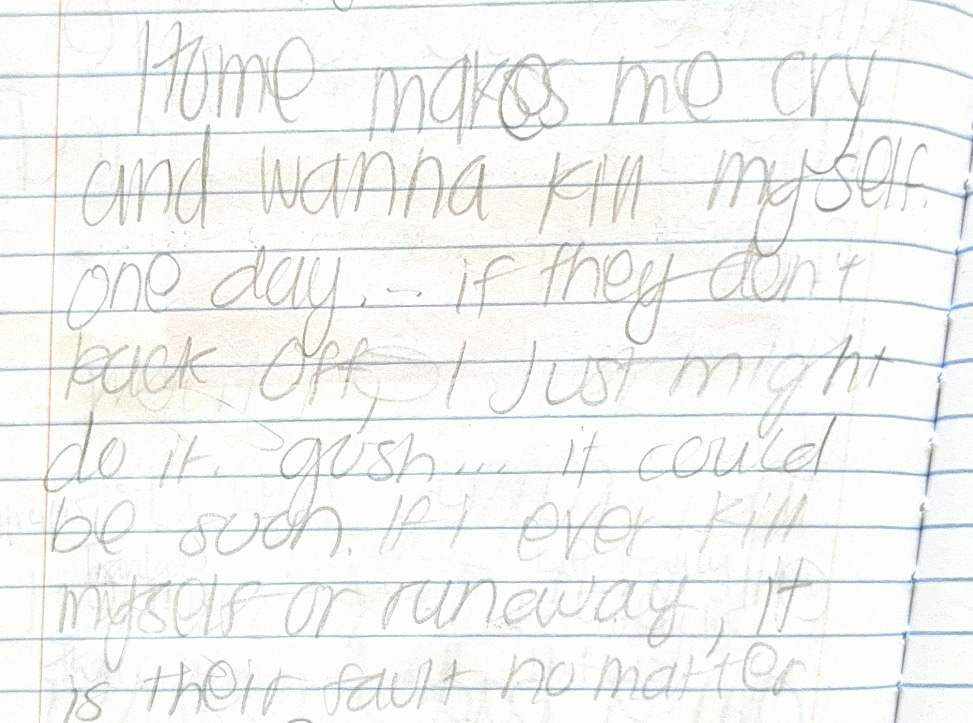 Home makes me cry
and wanna kill myself.
one day... if they don't
back off, I Just might
do it. gosh... it could
be soon. If I ever kill
myself or runaway, It
is their fault no matter